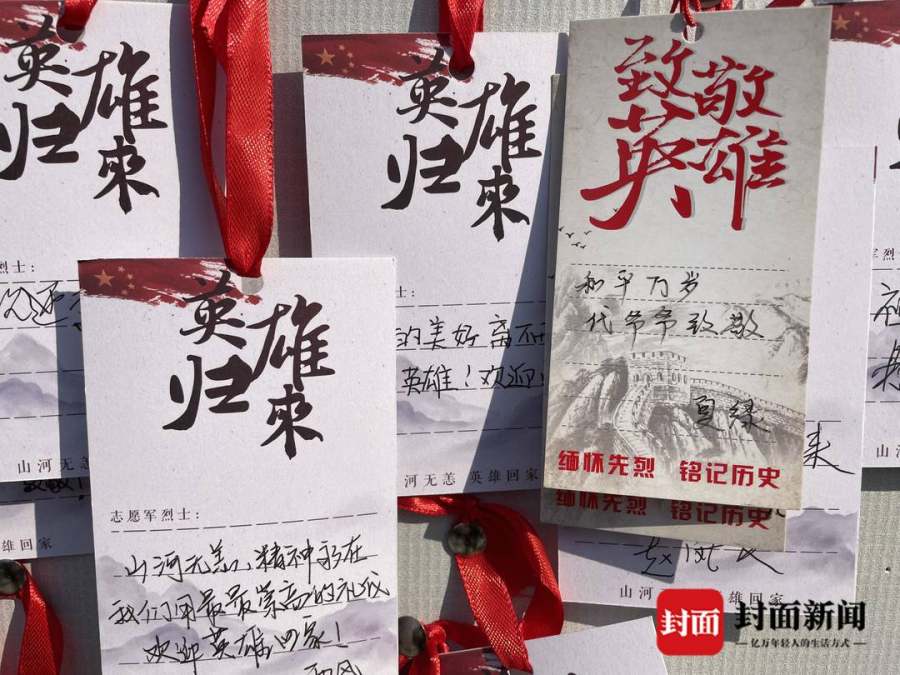 英雄
归来
烈士:
山河无恙
雄回家
英雄
归来
的美好
英雄!欢迎
河无恙 英雄回家
致敬
英雄
和平万岁
代爷爷致敬
缅怀先烈 铭记历史
缅怀先烈 铭记历史
烈士:
来
山河
雄回家
英雄
归来
志愿军烈士:
山河无恙,精神永在
我们用最最崇高的礼仪
欢迎英雄回家!
封面
封面新闻
亿万年轻人的生活方式